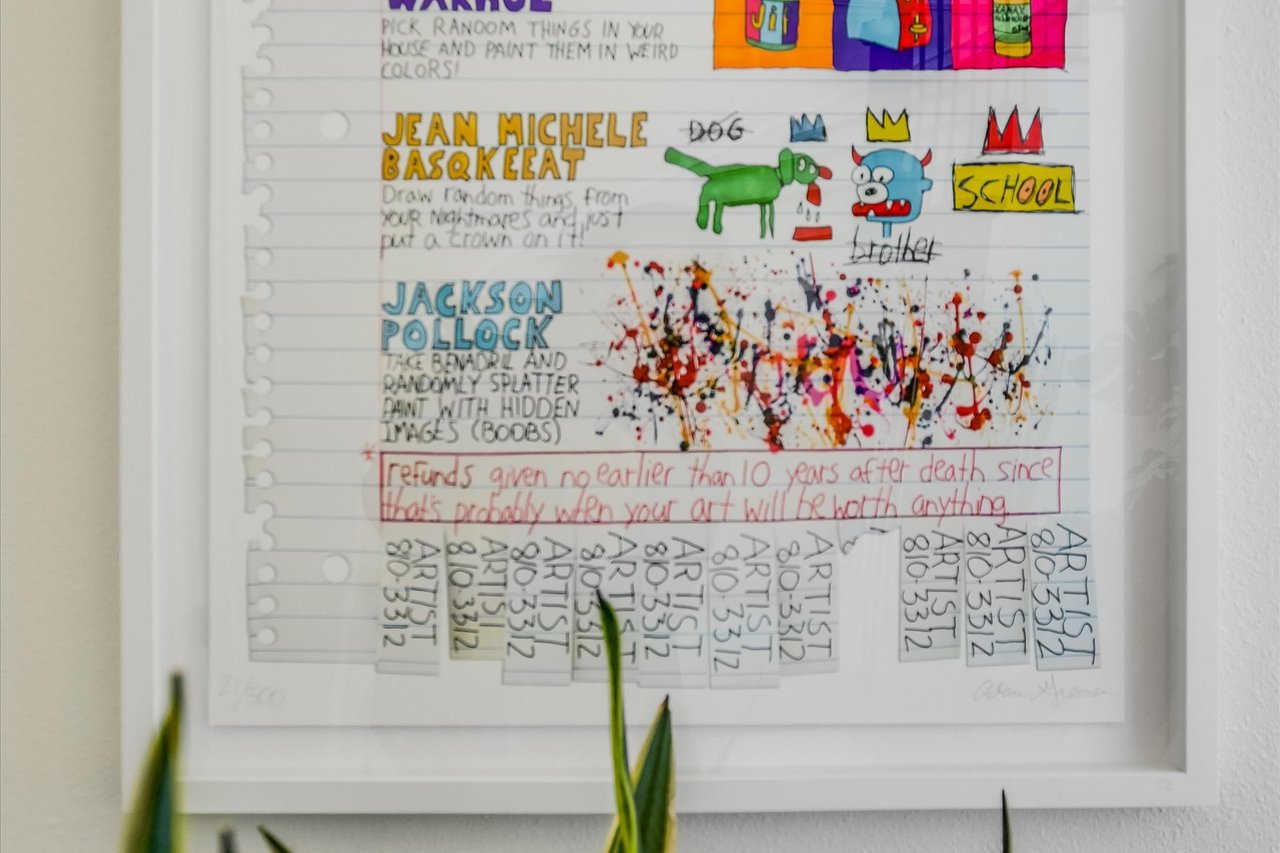 WARHOL
PICK RANDOM THINGS IN YOUR
HOUSE AND PAINT THEM IN WEIRD
COLORS!
Jif
JEAN MICHELE
BASQKEEAT
Draw random things from
your nightmares and just
put a crown on it!
DOG
SCHOOL
brother
JACKSON
POLLOCK
TAKE BENADRIL AND
RANDOMLY SPLATTER
PAINT WITH HIDDEN
IMAGES (BOOBS)
*
refunds given no earlier than 10 years after death since
that's probably when your art will be worth anything.
ARTIST
810-3312
ARTIST
810-3312
ARTIST
810-3312
ARTIST
810-3312
ARTIST
810-3312
ARTIST
810-3312
ARTIST
810-3312
ARTIST
810-3312
ARTIST
810-3312
ARTIST
810-3312